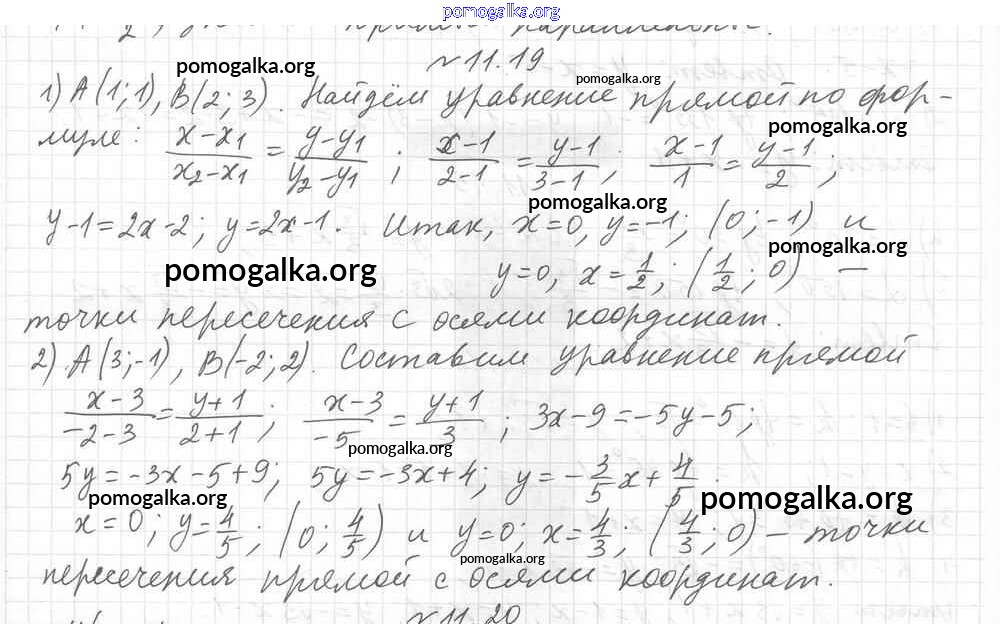 pomogalka.org
N 11.19
pomogalka.org
pomogalka.org
1) A(1;1), B(2;3). Найдём уравнение прямой по фор-
pomogalka.org
муле: (x-x1)/(x2-x1) = (y-y1)/(y2-y1); (x-1)/(2-1) = (y-1)/(3-1); (x-1)/1 = (y-1)/2;
pomogalka.org
y-1=2x-2; y=2x-1. Итак, x=0, y=-1; (0;-1) и
pomogalka.org
pomogalka.org
y=0, x=1/2; (1/2; 0) —
точки пересечения с осями координат.
2) A(3;-1), B(-2;2). Составим уравнение прямой
(x-3)/(-2-3) = (y+1)/(2+1); (x-3)/(-5) = (y+1)/3; 3x-9=-5y-5;
pomogalka.org
5y=-3x-5+9; 5y=-3x+4; y=-3/5x+4/5.
pomogalka.org
pomogalka.org
x=0; y=4/5; (0; 4/5) и y=0; x=4/3; (4/3; 0) – точки
pomogalka.org
пересечения прямой с осями координат.
N 11.20